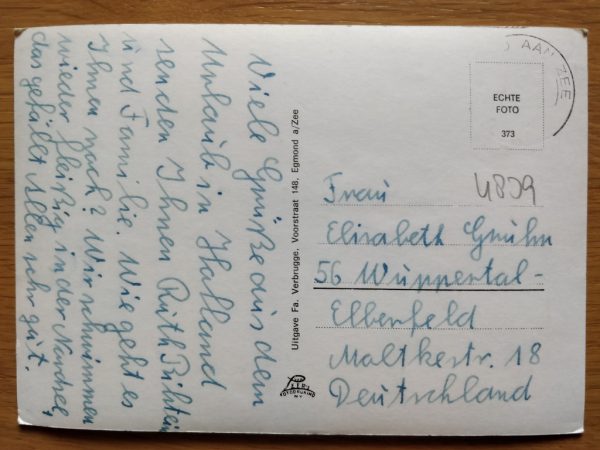 Viele Grüße aus dem
Urlaub in Holland
senden Ihnen Ruth
und Familie. Wie geht es
Ihnen noch? Wir schwimmen
wieder fleißig in der Nordsee,
das gefällt Allen sehr gut.
Uitgave Fa. Verbrugge, Voorstraat 148, Egmond a/Zee
AAN ZEE
ECHTE
FOTO
373
4809
Frau
Elisabeth Gruhn
56 Wuppertal-
Elberfeld
Moltkestr. 18
Deutschland